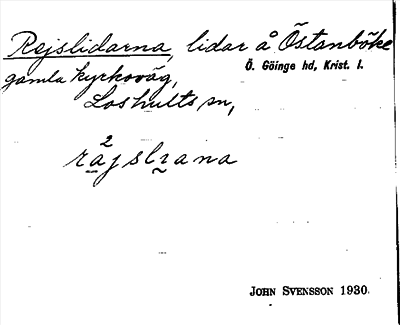 Rejslidarna, lidar å Östanböke
Ö. Göinge hd, Krist. l.
gamla kyrkoväg,
Loshults sn,
2
räjslɿana
JOHN SVENSSON 1930.